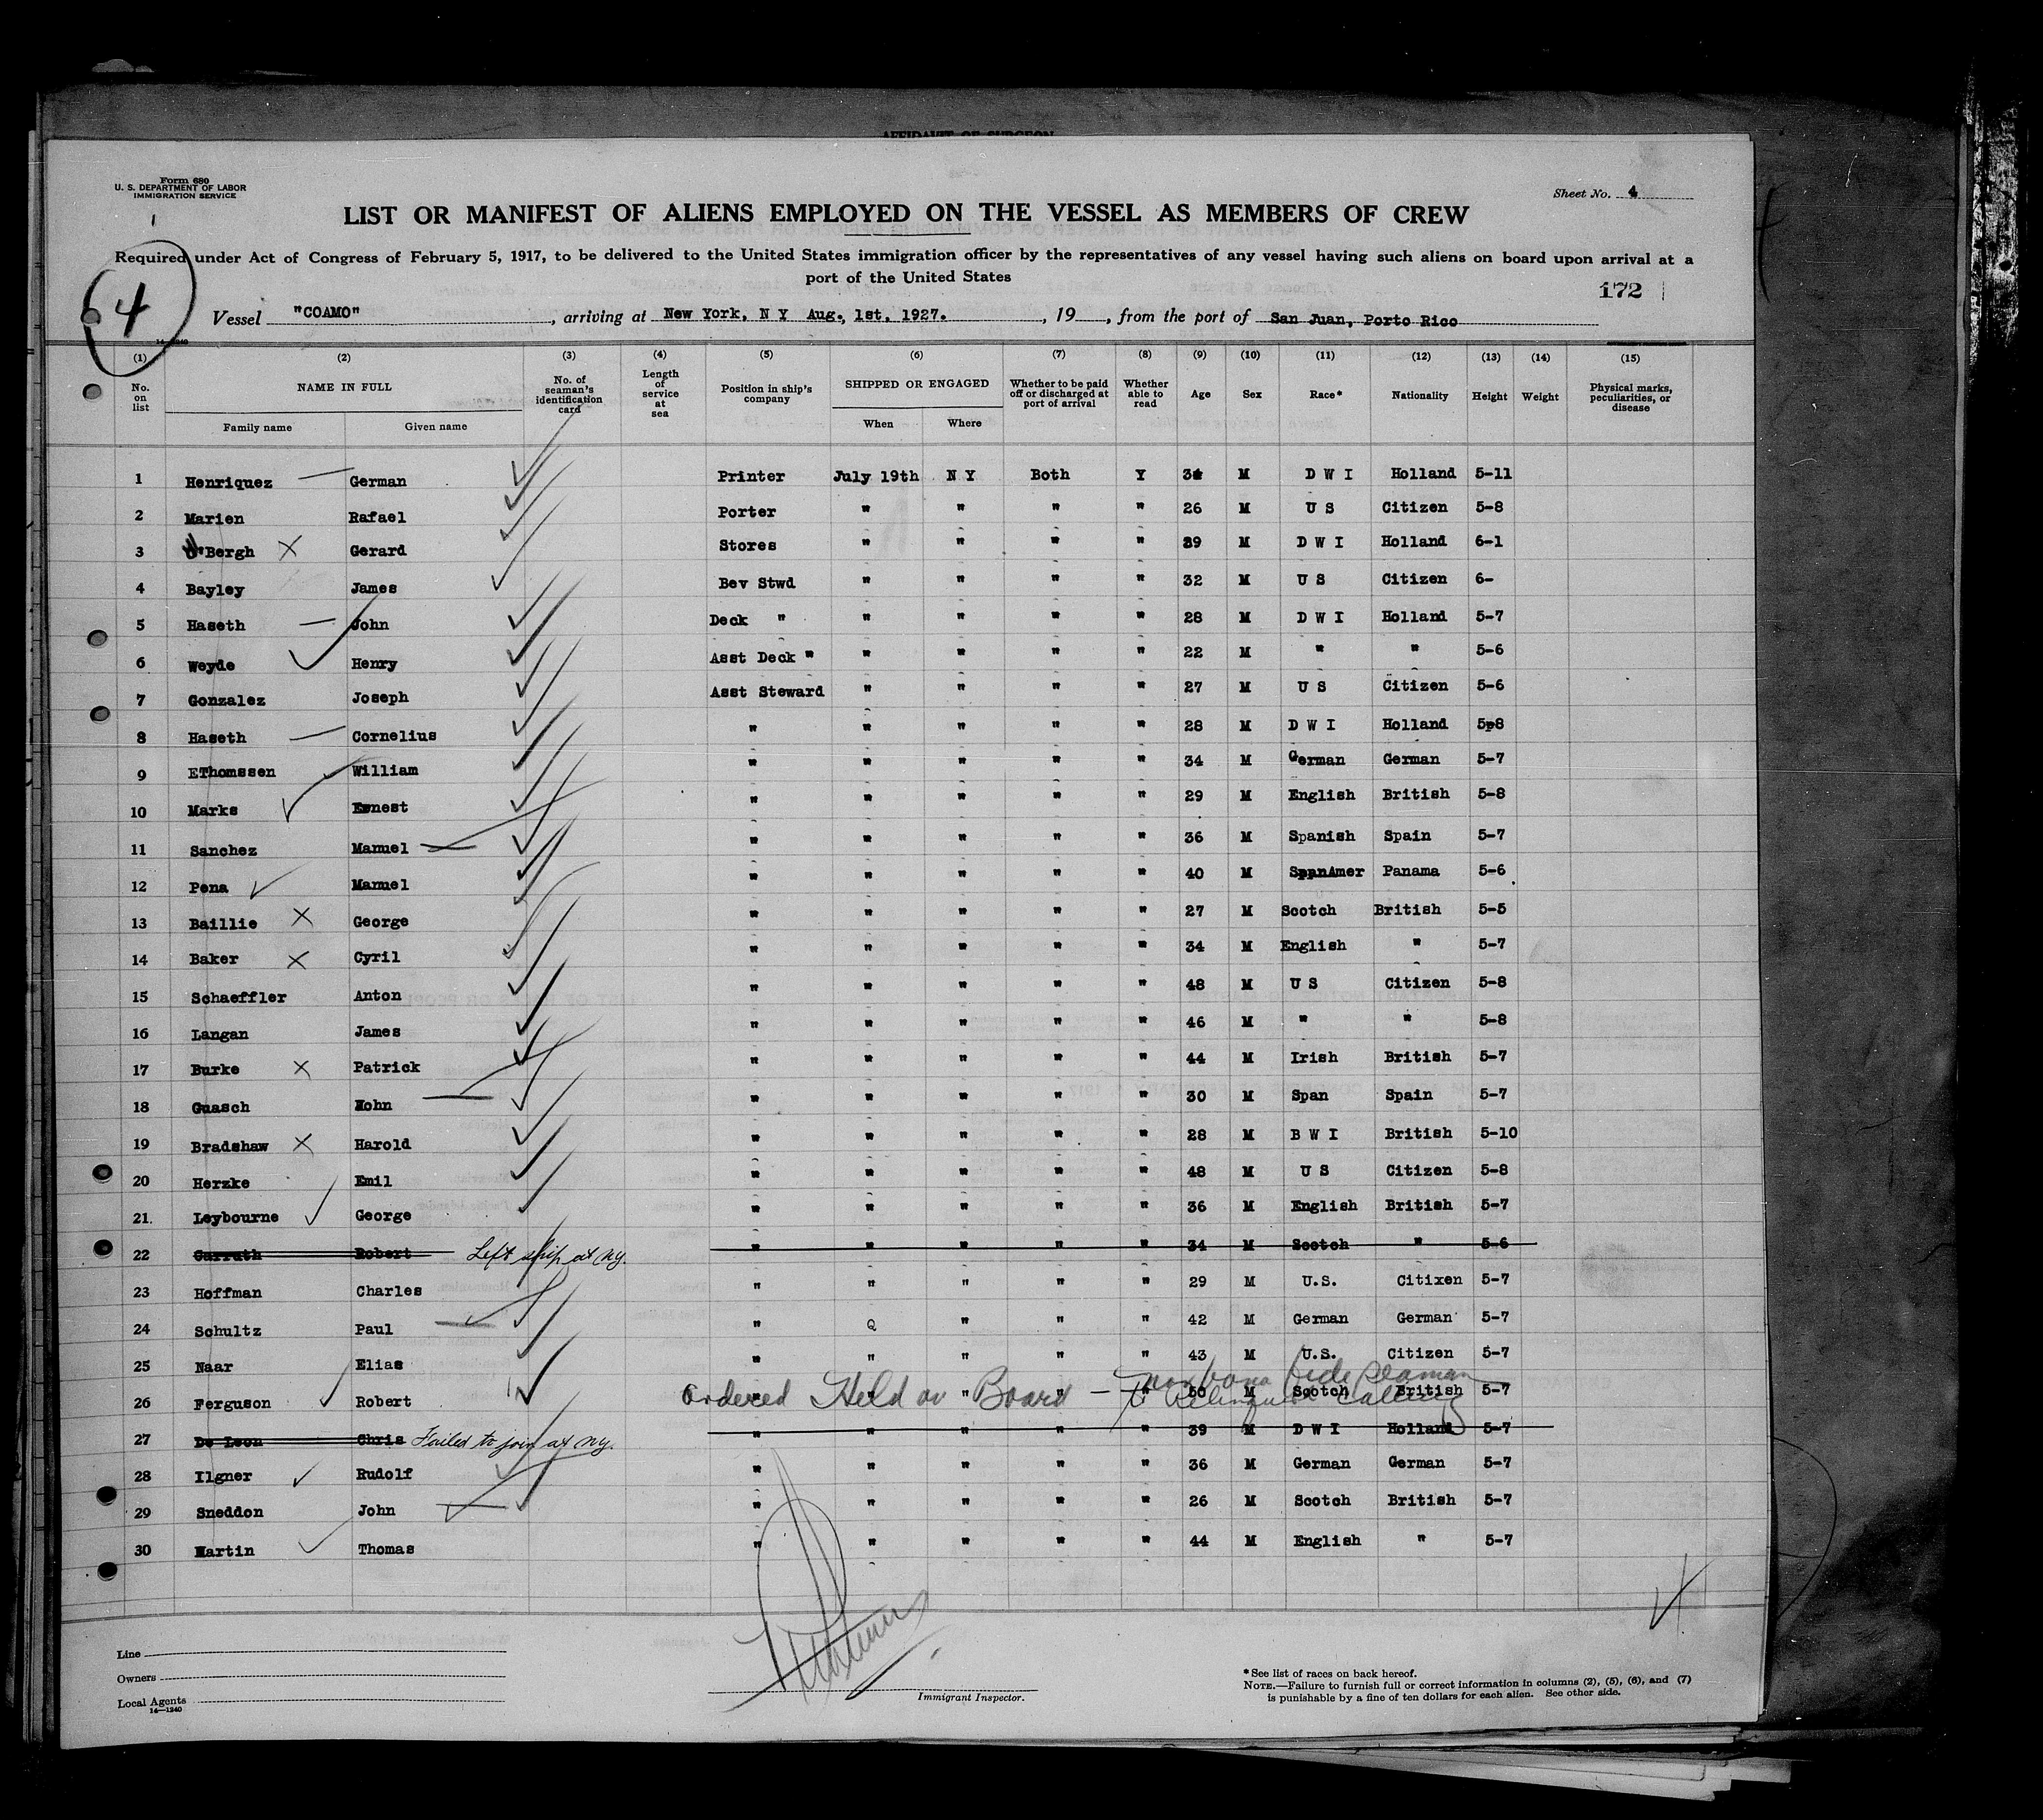 AFFIDAVIT OF SURGEON
Form 680
U. S. DEPARTMENT OF LABOR
IMMIGRATION SERVICE
Sheet No. 4
1
LIST OR MANIFEST OF ALIENS EMPLOYED ON THE VESSEL AS MEMBERS OF CREW
Required under Act of Congress of February 5, 1917, to be delivered to the United States immigration officer by the representatives of any vessel having such aliens on board upon arrival at a
port of the United States
4
172
Vessel "COAMO", arriving at New York, N Y Aug., 1st, 1927., 19, from the port of San Juan, Porto Rico
14-1240
(1) (2) (3) (4) (5) (6) (7) (8) (9) (10) (11) (12) (13) (14) (15)
No. on list NAME IN FULL No. of seaman's identification card Length of service at sea Position in ship's company SHIPPED OR ENGAGED Whether to be paid off or discharged at port of arrival Whether able to read Age Sex Race* Nationality Height Weight Physical marks, peculiarities, or disease
Family name Given name When Where
1 Henriquez German Printer July 19th N Y Both Y 34 M D W I Holland 5-11
2 Marien Rafael Porter " " " " 26 M U S Citizen 5-8
3 D'Bergh X Gerard Stores " " " " 39 M D W I Holland 6-1
4 Bayley James Bev Stwd " " " " 32 M U S Citizen 6-
5 Haseth John Deck " " " " " 28 M D W I Holland 5-7
6 Weyde Henry Asst Deck " " " " " 22 M " " 5-6
7 Gonzalez Joseph Asst Steward " " " " 27 M U S Citizen 5-6
8 Haseth Cornelius " " " " " 28 M D W I Holland 5-8
9 EThomssen William " " " " " 34 M German German 5-7
10 Marks Ernest " " " " " 29 M English British 5-8
11 Sanchez Manuel " " " " " 36 M Spanish Spain 5-7
12 Pena Manuel " " " " " 40 M SpanAmer Panama 5-6
13 Baillie X George " " " " " 27 M Scotch British 5-5
14 Baker X Cyril " " " " " 34 M English " 5-7
15 Schaeffler Anton " " " " " 48 M U S Citizen 5-8
16 Langan James " " " " " 46 M " " 5-8
17 Burke X Patrick " " " " " 44 M Irish British 5-7
18 Guasch Hohn " " " " " 30 M Span Spain 5-7
19 Bradshaw X Harold " " " " " 28 M B W I British 5-10
20 Herzke Emil " " " " " 48 M U S Citizen 5-8
21. Leybourne George " " " " " 36 M English British 5-7
22 Carruth Robert Left ship at NY. " " " " " 34 M Scotch " 5-6
23 Hoffman Charles " " " " " 29 M U.S. Citixen 5-7
24 Schultz Paul " Q " " " 42 M German German 5-7
25 Naar Elias " " " " " 43 M U.S. Citizen 5-7
Ordered Held on Board - non bona fide seaman
26 Ferguson Robert " " " " " 30 M Scotch British 5-7
Relinquish calling
27 De Leon Chris Failed to join at NY. " " " " " 39 M D W I Holland 5-7
28 Ilgner Rudolf " " " " " 36 M German German 5-7
29 Sneddon John " " " " " 26 M Scotch British 5-7
30 Martin Thomas " " " " " 44 M English " 5-7
Line
Owners
Local Agents
14-1240
Immigrant Inspector.
*See list of races on back hereof.
NOTE.—Failure to furnish full or correct information in columns (2), (5), (6), and (7)
is punishable by a fine of ten dollars for each alien. See other side.